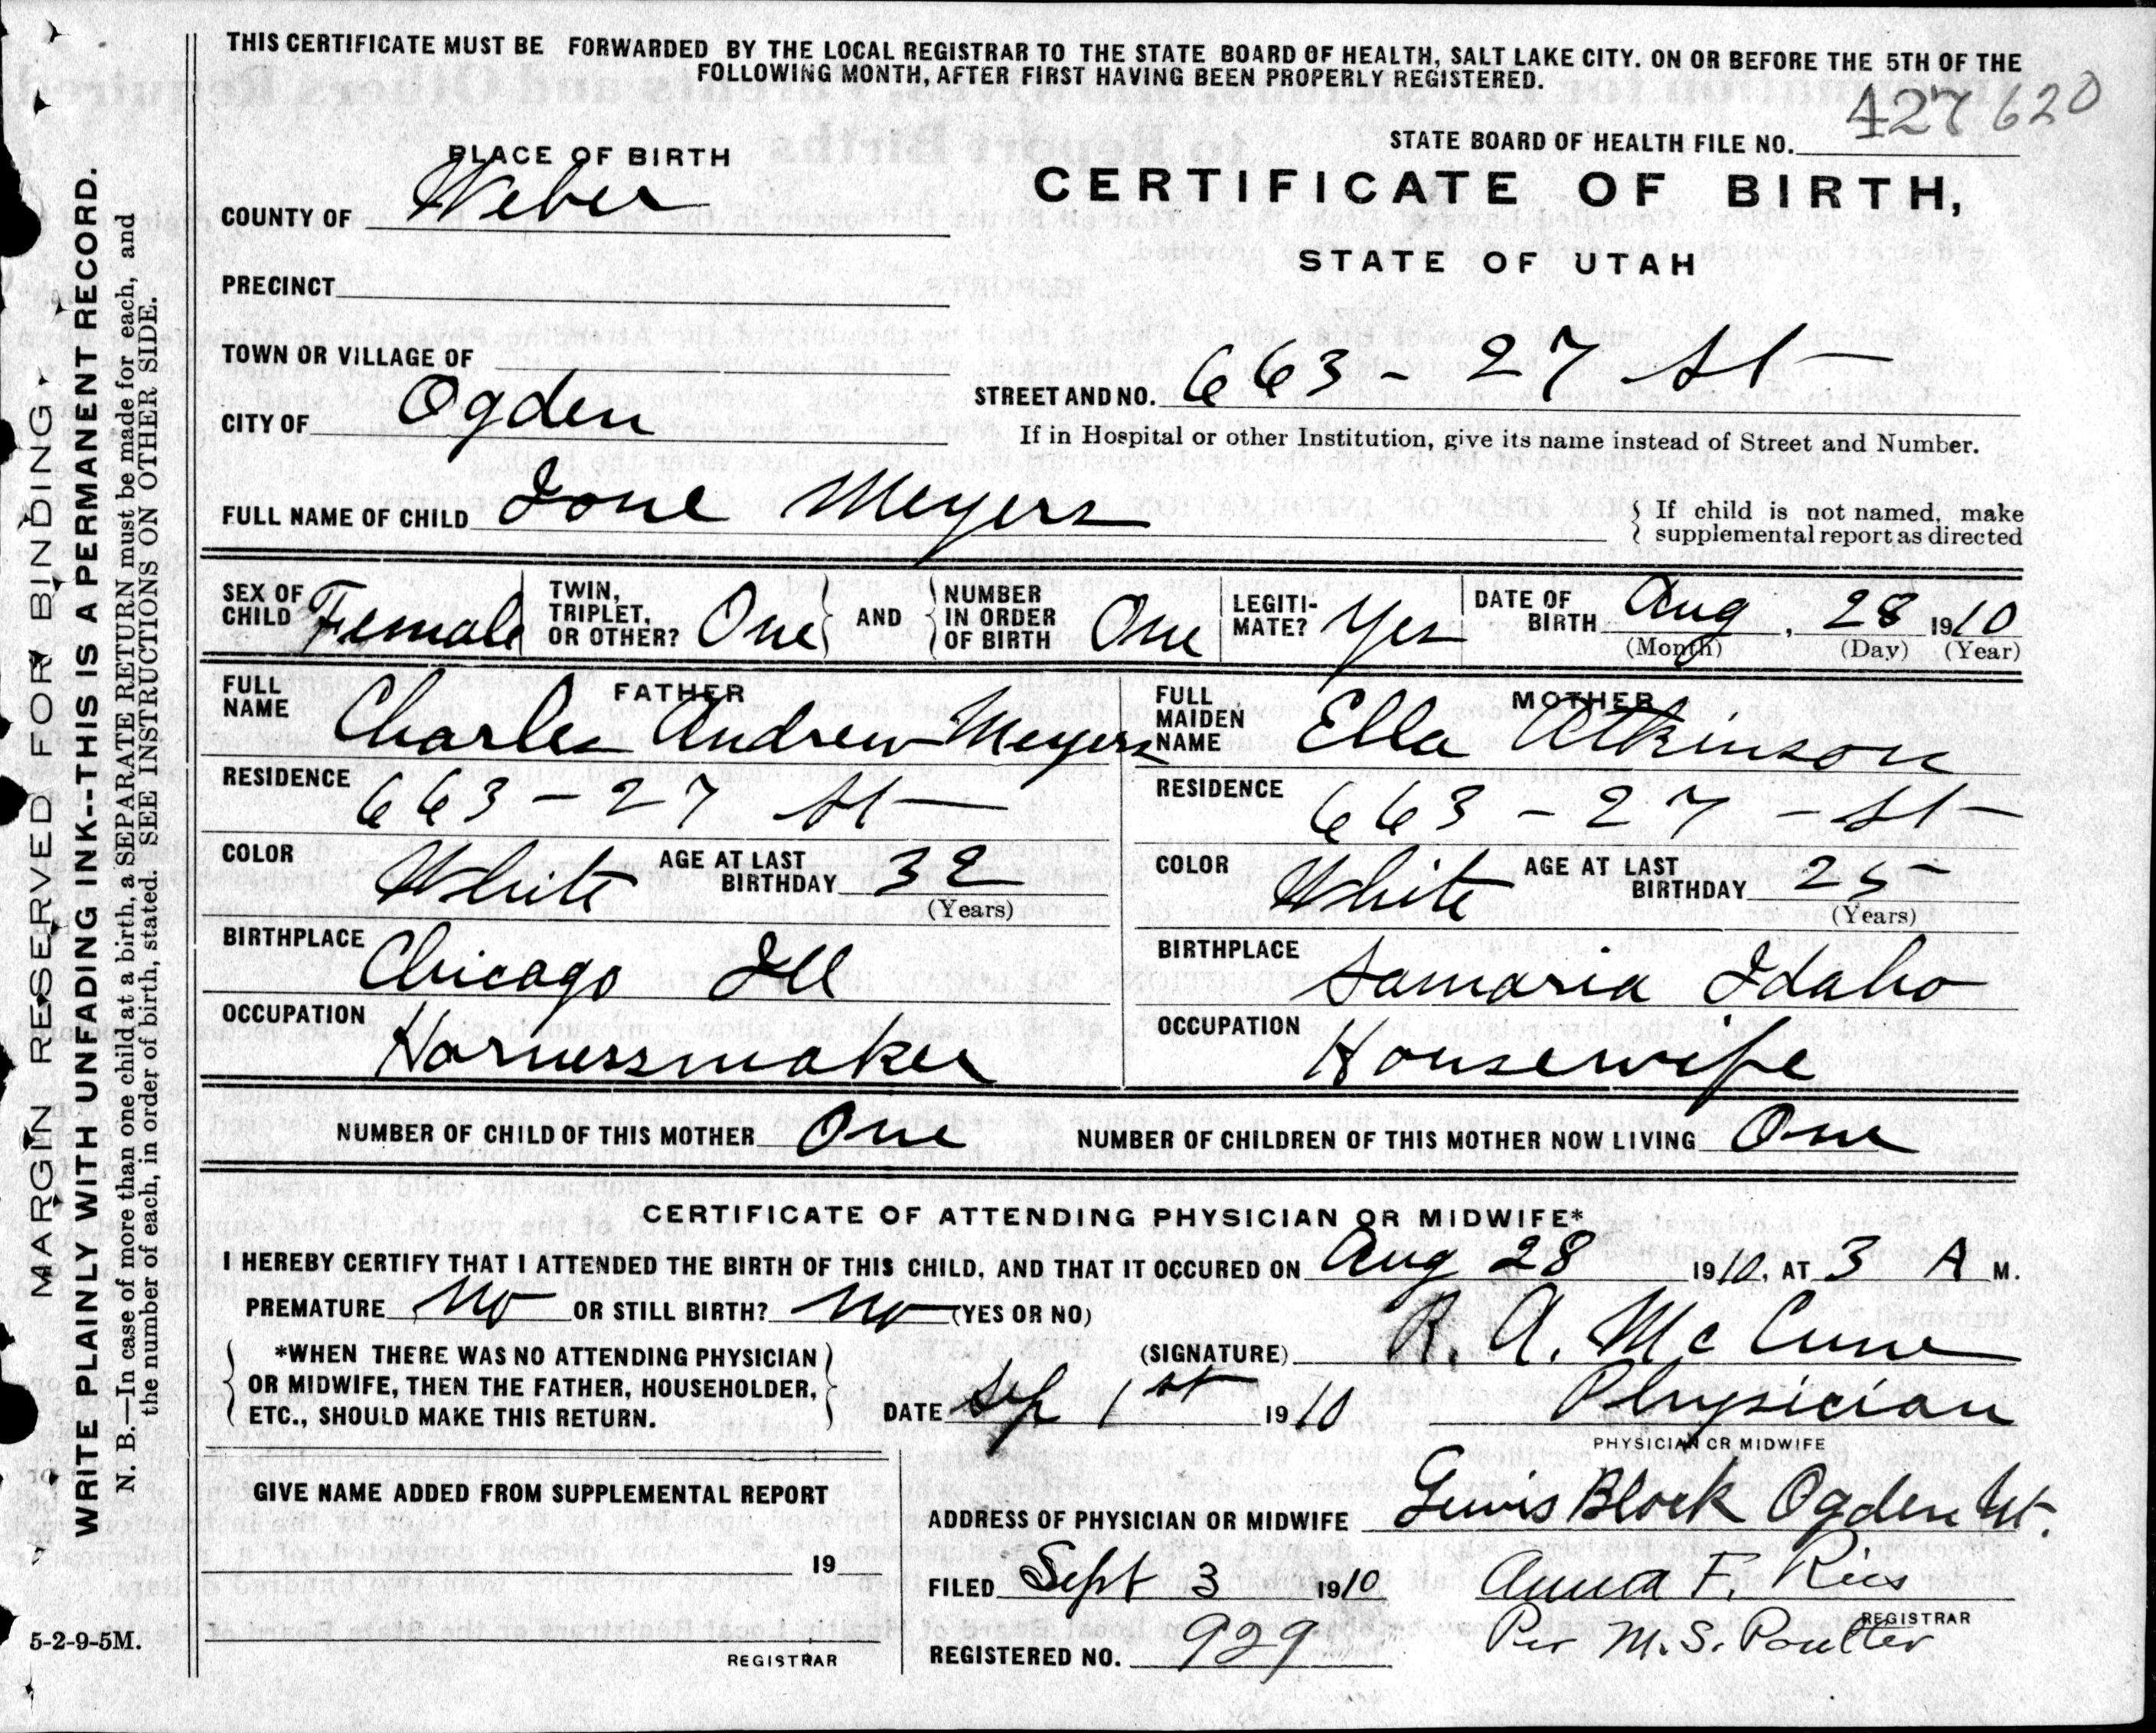 THIS CERTIFICATE MUST BE FORWARDED BY THE LOCAL REGISTRAR TO THE STATE BOARD OF HEALTH, SALT LAKE CITY. ON OR BEFORE THE 5TH OF THE
FOLLOWING MONTH, AFTER FIRST HAVING BEEN PROPERLY REGISTERED.
427 620
STATE BOARD OF HEALTH FILE NO.
PLACE OF BIRTH
CERTIFICATE OF BIRTH,
COUNTY OF Weber
STATE OF UTAH
PRECINCT
TOWN OR VILLAGE OF
STREET AND NO. 663 - 27 St
CITY OF Ogden
If in Hospital or other Institution, give its name instead of Street and Number.
FULL NAME OF CHILD Ione Meyers
If child is not named, make
supplemental report as directed
SEX OF CHILD Female TWIN, TRIPLET, OR OTHER? One AND NUMBER IN ORDER OF BIRTH One LEGITI-MATE? Yes DATE OF BIRTH Aug. 28 1910
(Month) (Day) (Year)
FATHER
FULL NAME Charles Andrew Meyers
RESIDENCE 663 - 27 St
COLOR White AGE AT LAST BIRTHDAY 32
(Years)
BIRTHPLACE Chicago Ill
OCCUPATION Harnessmaker
MOTHER
FULL MAIDEN NAME Ella Atkinson
RESIDENCE 663 - 27 - St
COLOR White AGE AT LAST BIRTHDAY 25
(Years)
BIRTHPLACE Samaria Idaho
OCCUPATION Housewife
NUMBER OF CHILD OF THIS MOTHER One NUMBER OF CHILDREN OF THIS MOTHER NOW LIVING One
CERTIFICATE OF ATTENDING PHYSICIAN OR MIDWIFE*
I HEREBY CERTIFY THAT I ATTENDED THE BIRTH OF THIS CHILD, AND THAT IT OCCURED ON Aug 28 1910, AT 3 A M.
PREMATURE No OR STILL BIRTH? No (YES OR NO)
*WHEN THERE WAS NO ATTENDING PHYSICIAN
OR MIDWIFE, THEN THE FATHER, HOUSEHOLDER,
ETC., SHOULD MAKE THIS RETURN.
(SIGNATURE) R. A. McCune
DATE Sep 1st 1910 Physician
PHYSICIAN OR MIDWIFE
GIVE NAME ADDED FROM SUPPLEMENTAL REPORT
19
REGISTRAR
ADDRESS OF PHYSICIAN OR MIDWIFE Lewis Block Ogden Ut.
FILED Sept 3 1910 Anna F. Ries
REGISTRAR
Per M. S. Poulter
REGISTERED NO. 929
MARGIN RESERVED FOR BINDING
WRITE PLAINLY WITH UNFADING INK--THIS IS A PERMANENT RECORD.
N. B.—In case of more than one child at a birth, a SEPARATE RETURN must be made for each, and
the number of each, in order of birth, stated. SEE INSTRUCTIONS ON OTHER SIDE.
5-2-9-5M.